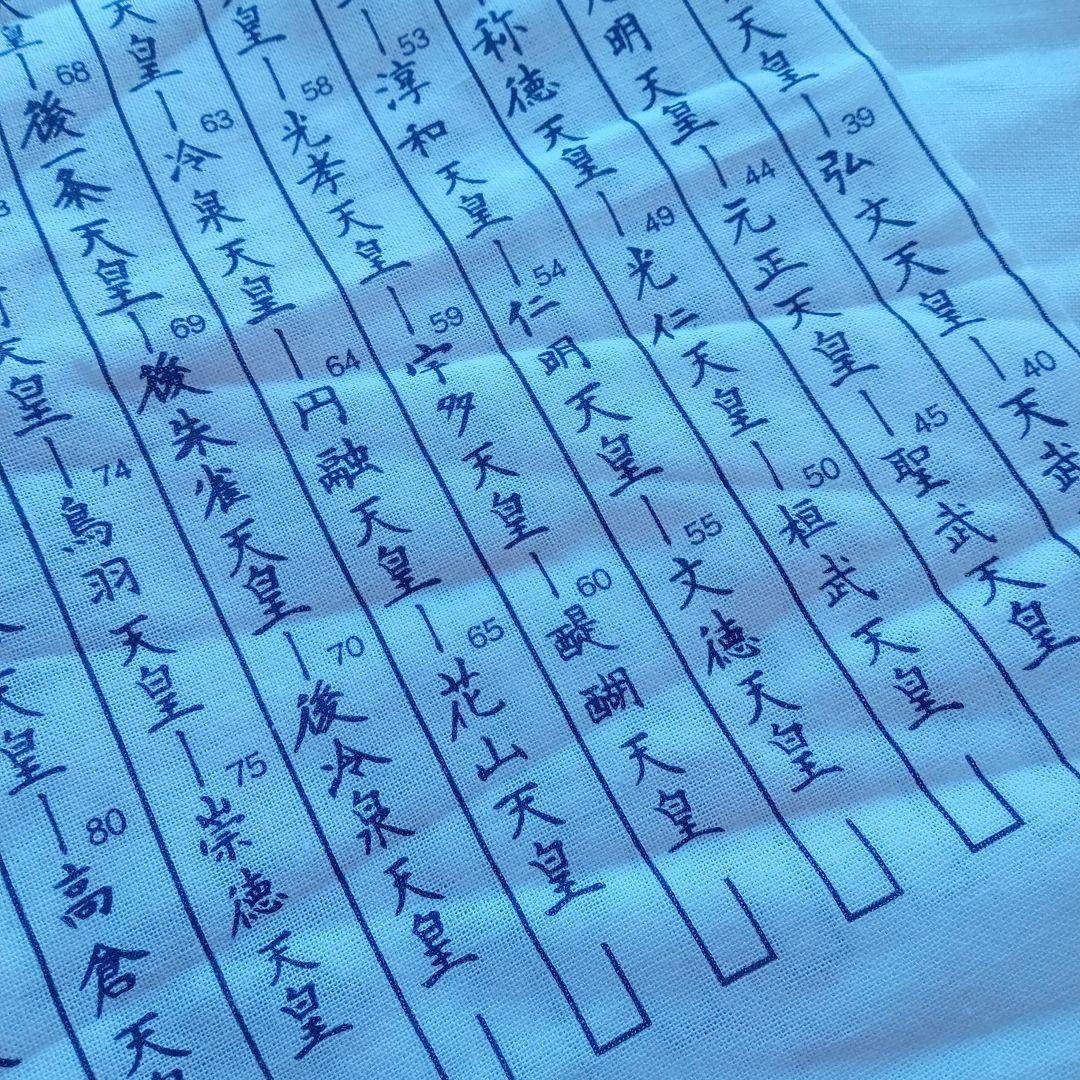 天皇
39 弘文天皇
40 天武
明天皇
44 元正天皇
45 聖武天皇
称徳天皇
49 光仁天皇
50 桓武天皇
53 淳和天皇
54 仁明天皇
55 文徳天皇
皇
58 光孝天皇
59 宇多天皇
60 醍醐天皇
天皇
63 冷泉天皇
64 円融天皇
65 花山天皇
皇
68 後一条天皇
69 後朱雀天皇
70 後冷泉天皇
天皇
74 鳥羽天皇
75 崇徳天皇
天皇
80 高倉天